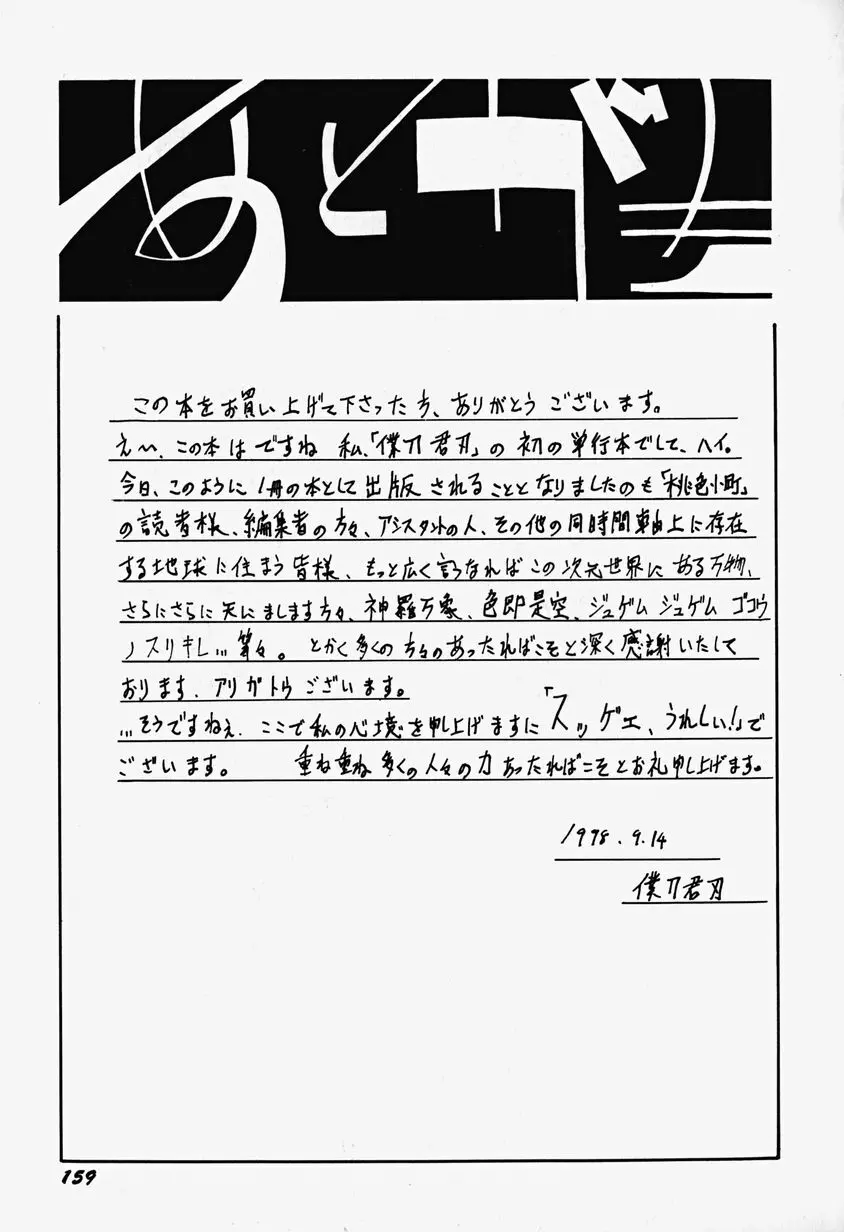 あとガキ
この本をお買い上げて下さった方、ありがとうございます。
え〜、この本はですね 私、「僕刀君刃」の初の単行本でして、ヘイ。
今日、このように1冊の本として出版されることとなりましたのも「桃色小町」
の読者様、編集者の方々、アシスタントの人、その他の同時間軸上に存在
する地球に住まう皆様、もっと広く言うなればこの次元世界にある万物、
さらにさらに天にまします方々、神羅万象、色即是空、ジュゲム ジュゲム ゴコウ
ノスリキレ…等々。とかく多くの方々のあったればこそと深く感謝いたして
おります、アリガトウございます。
…そうですねぇ、ここで私の心境を申し上げますに「スッゲェ、うれしい!」で
ございます。 重ね重ね多くの人々の力あったればこそとお礼申し上げます。
1998.9.14
僕刀君刃
159